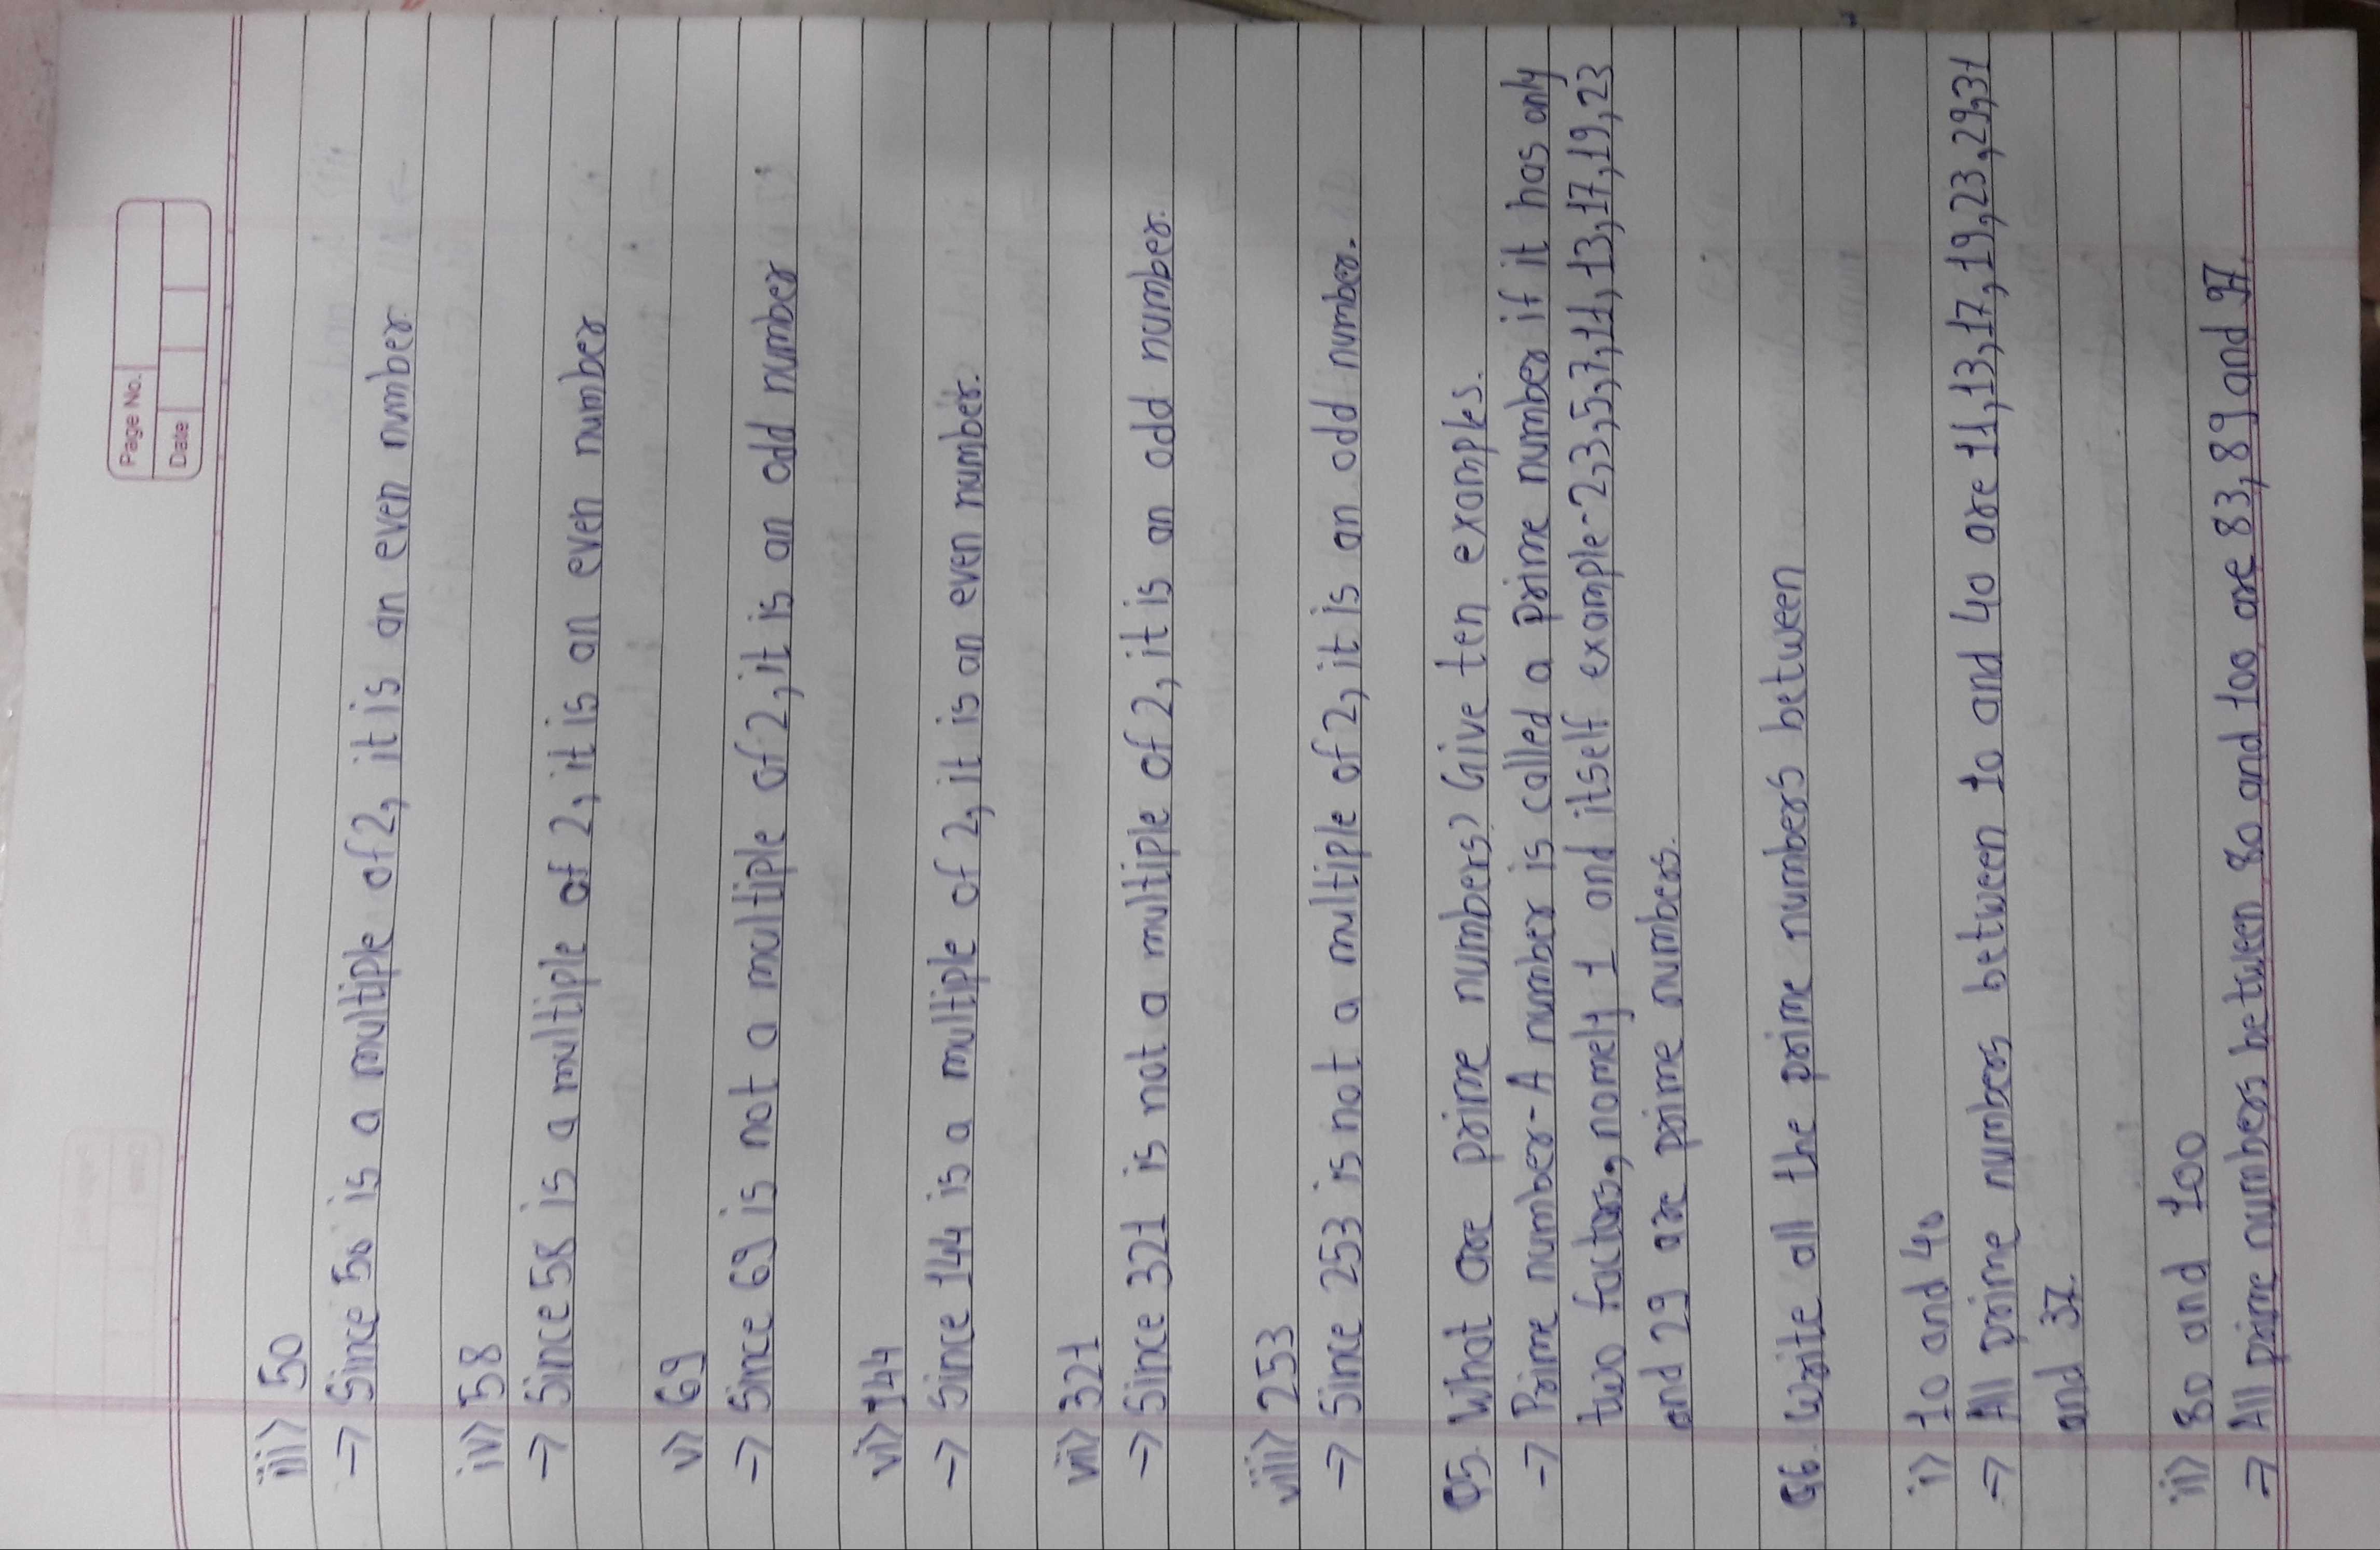 Page No.
Date
iii> 50
→ Since 50 is a multiple of 2, it is an even number.
iv> 58
→ Since 58 is a multiple of 2, it is an even number
v> 69
→ Since 69 is not a multiple of 2, it is an odd number
vi> 144
→ Since 144 is a multiple of 2, it is an even number.
vii> 321
→ Since 321 is not a multiple of 2, it is an odd number.
viii> 253
→ Since 253 is not a multiple of 2, it is an odd number.
Q5. What are prime numbers? Give ten examples.
→ Prime number - A number is called a prime number if it has only
two factors, namely 1 and itself example - 2,3,5,7,11,13,17,19,23
and 29 are prime numbers.
Q6. Write all the prime numbers between
i> 10 and 40
→ All prime numbers between 10 and 40 are 11,13,17,19,23,29,31
and 37.
ii> 80 and 100
→ All prime numbers between 80 and 100 are 83, 89 and 97.